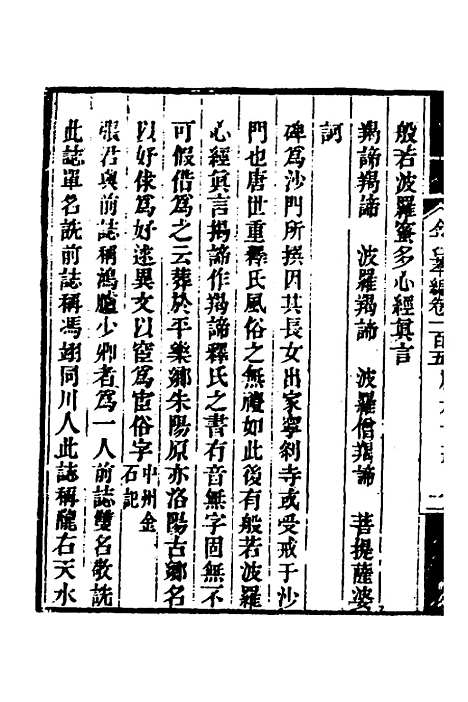 金石萃編卷一百五
般若波羅蜜多心經眞言
羯諦羯諦　波羅羯諦　波羅僧羯諦　菩提薩婆
訶
碑爲沙門所撰因其長女出家寧刹寺或受戒于沙
門也唐世重釋氏風俗之無禮如此後有般若波羅
心經眞言羯諦作羯諦釋氏之書有音無字固無不
可假借爲之云葬於平樂鄉朱陽原亦洛陽古鄉名
以好俅爲好逑異文以窅爲宦俗字中州金石記
張君與前誌稱鴻臚少卿者爲一人前誌雙名敬詵
此誌單名詵前誌稱馮翊同川人此誌稱隴右天水